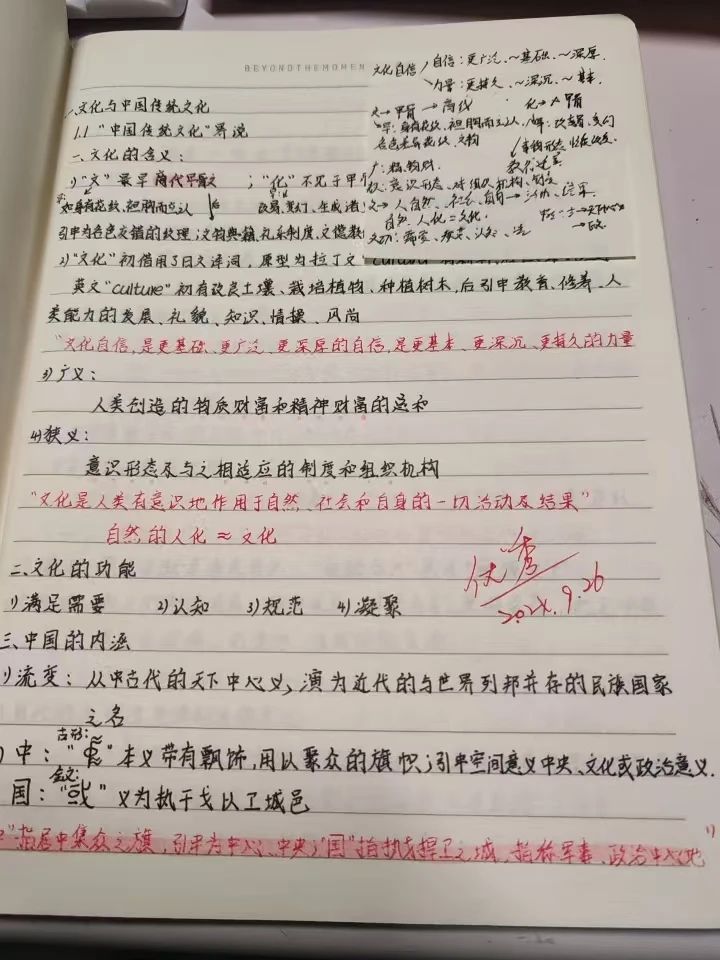 BEYONDTHEMOMEN
文化自信 自信：更广泛、~基础、~深厚.
力量：更持久、~深沉、~基本
文→甲骨→商代
化→甲骨
一、文化与中国传统文化
1.1 "中国传统文化"界说
一、文化的含义：
1)"文"最早商代甲骨文 ；"化"不见于甲骨
引申为各色交错的纹理；文物典籍、礼乐制度、文德教
2)"文化"初借用了日文译词，原型为拉丁文"cultura"
英文"culture"初有改良土壤、栽培植物、种植树木，后引申教育、修养、人
类能力的发展、礼貌、知识、情操、风尚
"文化自信，是更基础、更广泛、更深厚的自信，是更基本、更深沉、更持久的力量
3)广义：
人类创造的物质财富和精神财富的总和
4)狭义：
意识形态及与之相适应的制度和组织机构
"文化是人类有意识地作用于自然、社会和自身的一切活动及结果"
自然的人化≈文化
二、文化的功能
1)满足需要 2)认知 3)规范 4)凝聚
优秀
9.26
三、中国的内涵
1)流变：从中古代的天下中心义，演为近代的与世界列邦并存的民族国家
之名
古形：
中："" 本义带有飘饰，用以聚众的旗帜；引申空间意义中央、文化或政治意义.
金文：
国："或"义为执干戈以卫城邑
"指居中集众之旗，引申为中心、中央；"国"指执戈捍卫之城，指称军事、政治中心地"